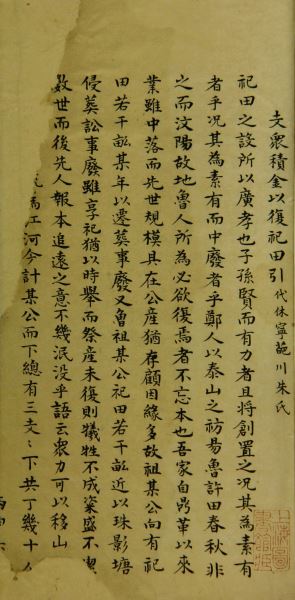 支衆積金以復祀田引 代休寧葩川朱氏
祀田之設所以廣孝也子孫賢而有力者且將創置之况其為素有
者乎况其為素有而中廢者乎鄭人以泰山之祊易魯許田春秋非
之而汶陽故地魯人所為必欲復焉者不忘本也吾家自鼎革以來
業雖中落而先世規模具在公産猶存顧因緣多故祖某公向有祀
田若干畝某年以遷葬事廢又魯祖某公祀田若干畝近以珠影塘
侵葬訟事廢雖享祀猶以時舉而祭産未復則犠牲不成粢盛不潔
數世而後先人報本追遠之意不幾泯没乎語云衆力可以移山
為江河今計某公而下總有三支〻下共丁幾十